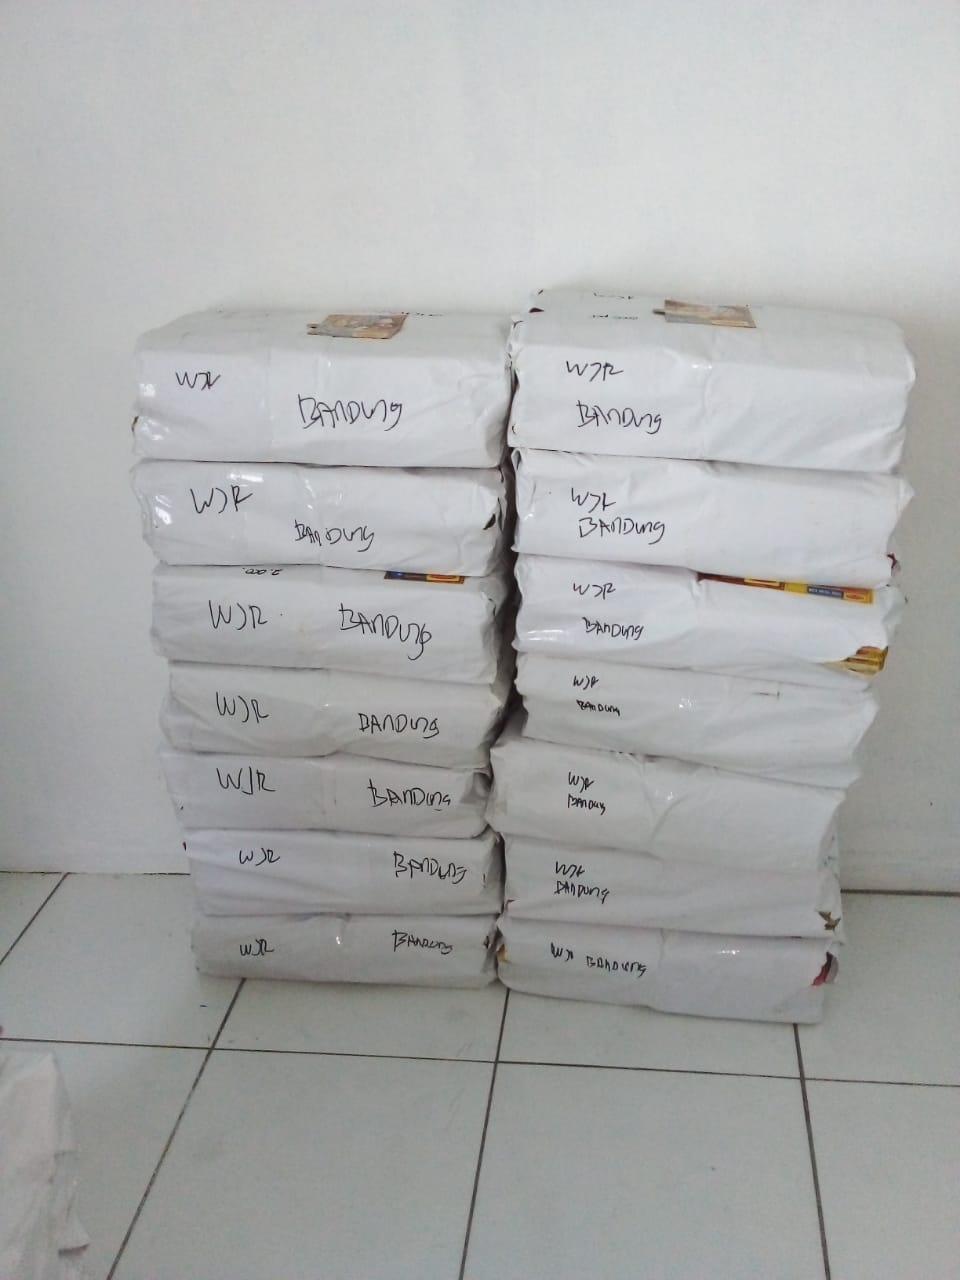 WJR
BANDUNG
WJR
BANDUNG
2.000.
WJR
BANDUNG
WJR
BANDUNG
WJR
BANDUNG
WJR
BANDUNG
WJR
BANDUNG
WJR
BANDUNG
WJR
BANDUNG
WJR
BANDUNG
WJR
BANDUNG
WJR
BANDUNG
WJR
BANDUNG
WJR BANDUNG